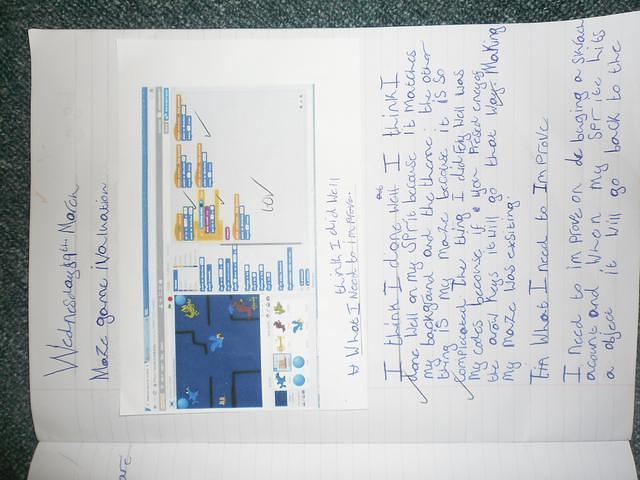 Wednesday 9th March
Maze game iValuation
think I did well
What I Need to Improve.
I think I done well I think I
done well on my SPrite because it matches
my backgrand and the theme. the other
thing is My Maze because it is so
complicated The thing I did rely well was
My codes because if you Presed eney of
the arow keys it will go that way. Making
My maze was exsiting.
What I need to Improve
I need to improve on debuging a skrach
acount and when my SPrite hits
a object it will go back to the